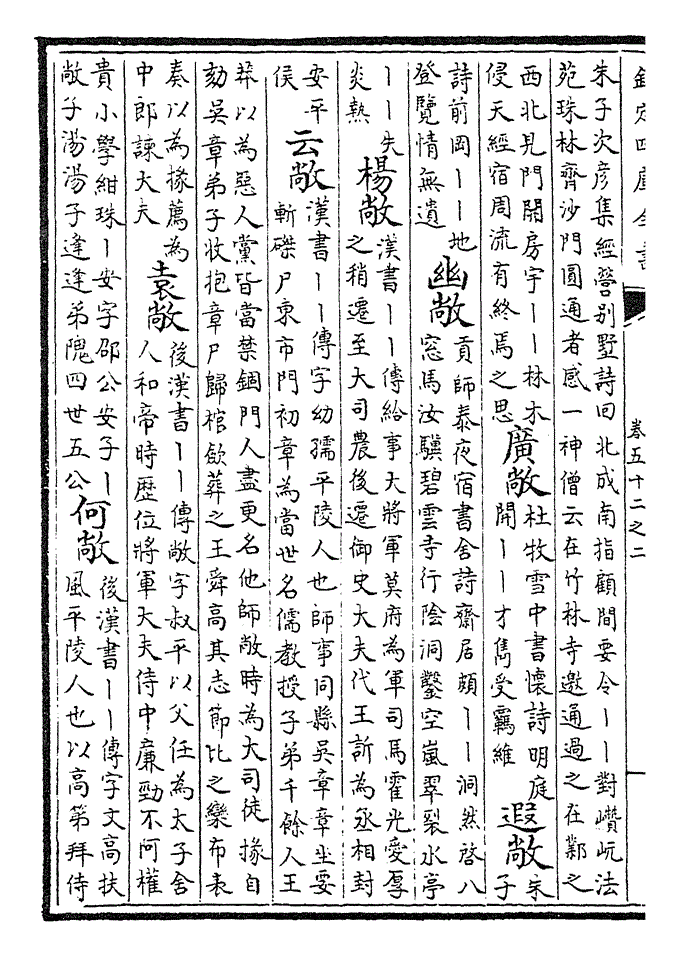 欽定四庫全書
卷五十二之二
一
朱子次彥集經營别墅詩曰北成南指顧間要令丨丨對巑岏法
苑珠林齊沙門圓通者感一神僧云在竹林寺邀通過之在鄴之
西北見門開房宇丨丨林木
侵天經宿周流有終焉之思
廣敞
杜牧雪中書懷詩明庭
開丨丨才雋受羈維
遐敞
宋
子
詩前岡丨丨地
登覽情無遺
幽敞
貢師泰夜宿書舍詩齋居頗丨丨洞然啓八
窓馬汝驥碧雲寺行陰洞鑿空嵐翠裂水亭
丨丨失
炎熱
楊敞
漢書丨丨傳給事大將軍莫府為軍司馬霍光愛厚
之稍遷至大司農後遷御史大夫代王訢為丞相封
安平
侯
云敞
漢書丨丨傳字幼孺平陵人也師事同縣吳章章坐要
斬磔尸東市門初章為當世名儒教授子弟千餘人王
莽以為惡人黨皆當禁錮門人盡更名他師敞時為大司徒掾自
劾吳章弟子收抱章尸歸棺歛葬之王舜高其志節比之欒布表
奏以為掾薦為
中郎諫大夫
袁敞
後漢書丨丨傳敞字叔平以父任為太子舍
人和帝時歷位將軍大夫侍中廉勁不阿權
貴小學紺珠丨安字邵公安子丨
敞子湯湯子逢逢弟隗四世五公
何敞
後漢書丨丨傳字文高扶
風平陵人也以高第拜侍